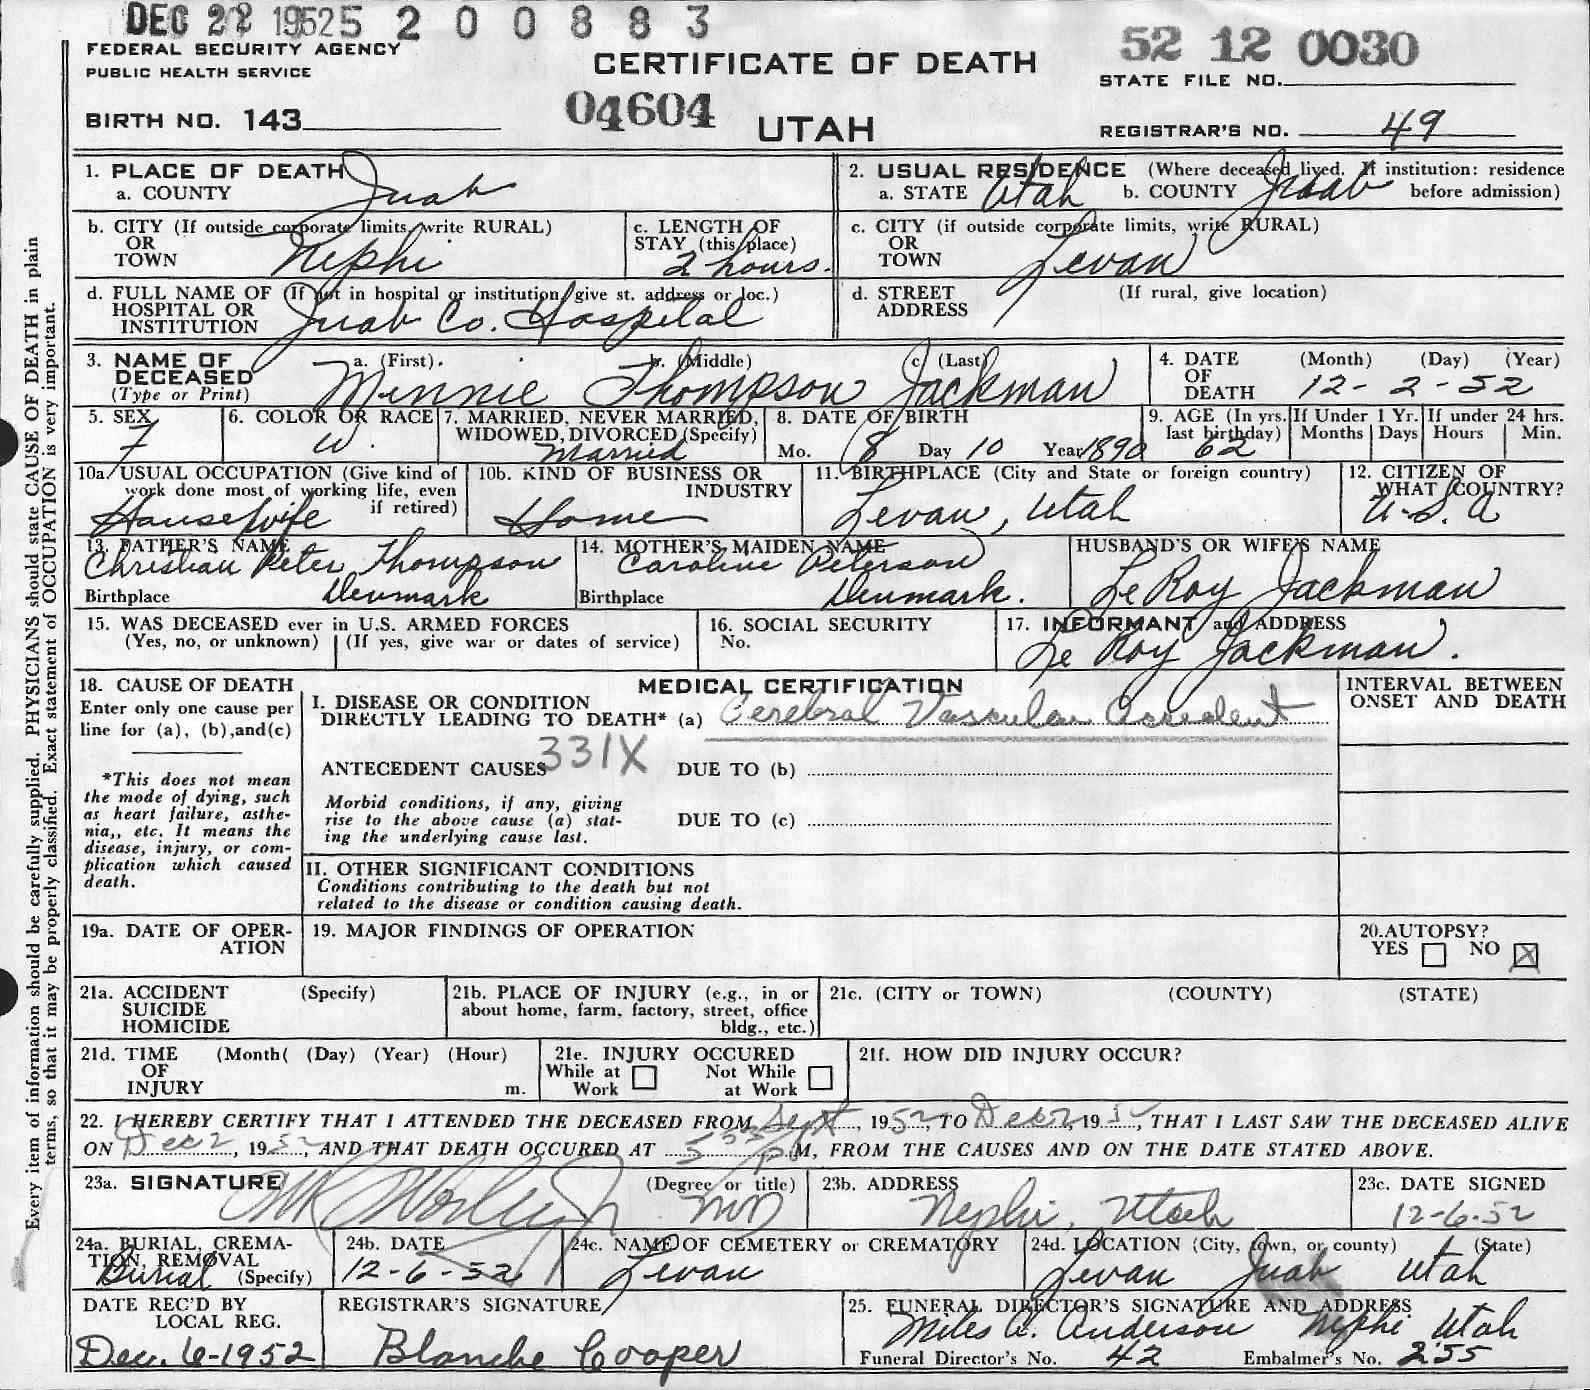 DEC 22 1952 5 2 0 0 8 8 3
FEDERAL SECURITY AGENCY
PUBLIC HEALTH SERVICE
CERTIFICATE OF DEATH
52 12 0030
STATE FILE NO.
BIRTH NO. 143
04604
UTAH
REGISTRAR'S NO. 49
Every item of information should be carefully supplied. PHYSICIANS should state CAUSE OF DEATH in plain
terms, so that it may be properly classified. Exact statement of OCCUPATION is very important.
1. PLACE OF DEATH
a. COUNTY Juab
2. USUAL RESIDENCE (Where deceased lived. If institution: residence
a. STATE Utah b. COUNTY Juab before admission)
b. CITY (If outside corporate limits, write RURAL)
OR
TOWN Nephi
c. LENGTH OF
STAY (this place)
2 hours.
c. CITY (if outside corporate limits, write RURAL)
OR
TOWN Levan
d. FULL NAME OF (If not in hospital or institution, give st. address or loc.)
HOSPITAL OR
INSTITUTION Juab Co. Hospital
d. STREET (If rural, give location)
ADDRESS
3. NAME OF a. (First). b. (Middle) c. (Last)
DECEASED
(Type or Print) Minnie Thompson Jackman
4. DATE (Month) (Day) (Year)
OF
DEATH 12-2-52
5. SEX
F
6. COLOR OR RACE
W.
7. MARRIED, NEVER MARRIED,
WIDOWED, DIVORCED (Specify)
Married
8. DATE OF BIRTH
Mo. 8 Day 10 Year 1890
9. AGE (In yrs.
last birthday)
62
If Under 1 Yr.
Months Days
If under 24 hrs.
Hours Min.
10a. USUAL OCCUPATION (Give kind of
work done most of working life, even
if retired)
Housewife
10b. KIND OF BUSINESS OR
INDUSTRY
Home
11. BIRTHPLACE (City and State or foreign country)
Levan, Utah
12. CITIZEN OF
WHAT COUNTRY?
U.S.A
13. FATHER'S NAME
Christian Peter Thompson
Birthplace Denmark
14. MOTHER'S MAIDEN NAME
Caroline Peterson
Birthplace Denmark.
HUSBAND'S OR WIFE'S NAME
LeRoy Jackman
15. WAS DECEASED ever in U.S. ARMED FORCES
(Yes, no, or unknown) (If yes, give war or dates of service)
16. SOCIAL SECURITY
No.
17. INFORMANT and ADDRESS
Le Roy Jackman.
18. CAUSE OF DEATH
Enter only one cause per
line for (a), (b),and(c)
*This does not mean
the mode of dying, such
as heart failure, asthe-
nia,, etc. It means the
disease, injury, or com-
plication which caused
death.
MEDICAL CERTIFICATION
I. DISEASE OR CONDITION
DIRECTLY LEADING TO DEATH* (a) Cerebral Vascular Accident
331X
ANTECEDENT CAUSES DUE TO (b)
Morbid conditions, if any, giving
rise to the above cause (a) stat-
ing the underlying cause last.
DUE TO (c)
II. OTHER SIGNIFICANT CONDITIONS
Conditions contributing to the death but not
related to the disease or condition causing death.
INTERVAL BETWEEN
ONSET AND DEATH
19a. DATE OF OPER-
ATION
19. MAJOR FINDINGS OF OPERATION
20.AUTOPSY?
YES NO X
21a. ACCIDENT (Specify)
SUICIDE
HOMICIDE
21b. PLACE OF INJURY (e.g., in or
about home, farm, factory, street, office
bldg., etc.)
21c. (CITY or TOWN) (COUNTY) (STATE)
21d. TIME (Month( (Day) (Year) (Hour)
OF
INJURY m.
21e. INJURY OCCURED
While at Not While
Work at Work
21f. HOW DID INJURY OCCUR?
22. I HEREBY CERTIFY THAT I ATTENDED THE DECEASED FROM Sept, 1952, TO Dec 2, 1952, THAT I LAST SAW THE DECEASED ALIVE
ON Dec 2, 1952, AND THAT DEATH OCCURED AT 5 P M, FROM THE CAUSES AND ON THE DATE STATED ABOVE.
23a. SIGNATURE (Degree or title)
MD
23b. ADDRESS
Nephi, Utah
23c. DATE SIGNED
12-6-52
24a. BURIAL, CREMA-
TION, REMOVAL
Burial (Specify)
24b. DATE
12-6-52
24c. NAME OF CEMETERY or CREMATORY
Levan
24d. LOCATION (City, town, or county) (State)
Levan Juab Utah
DATE REC'D BY
LOCAL REG.
Dec. 6-1952
REGISTRAR'S SIGNATURE
Blanche Cooper
25. FUNERAL DIRECTOR'S SIGNATURE AND ADDRESS
Miles A. Anderson Nephi Utah
Funeral Director's No. 42 Embalmer's No. 255